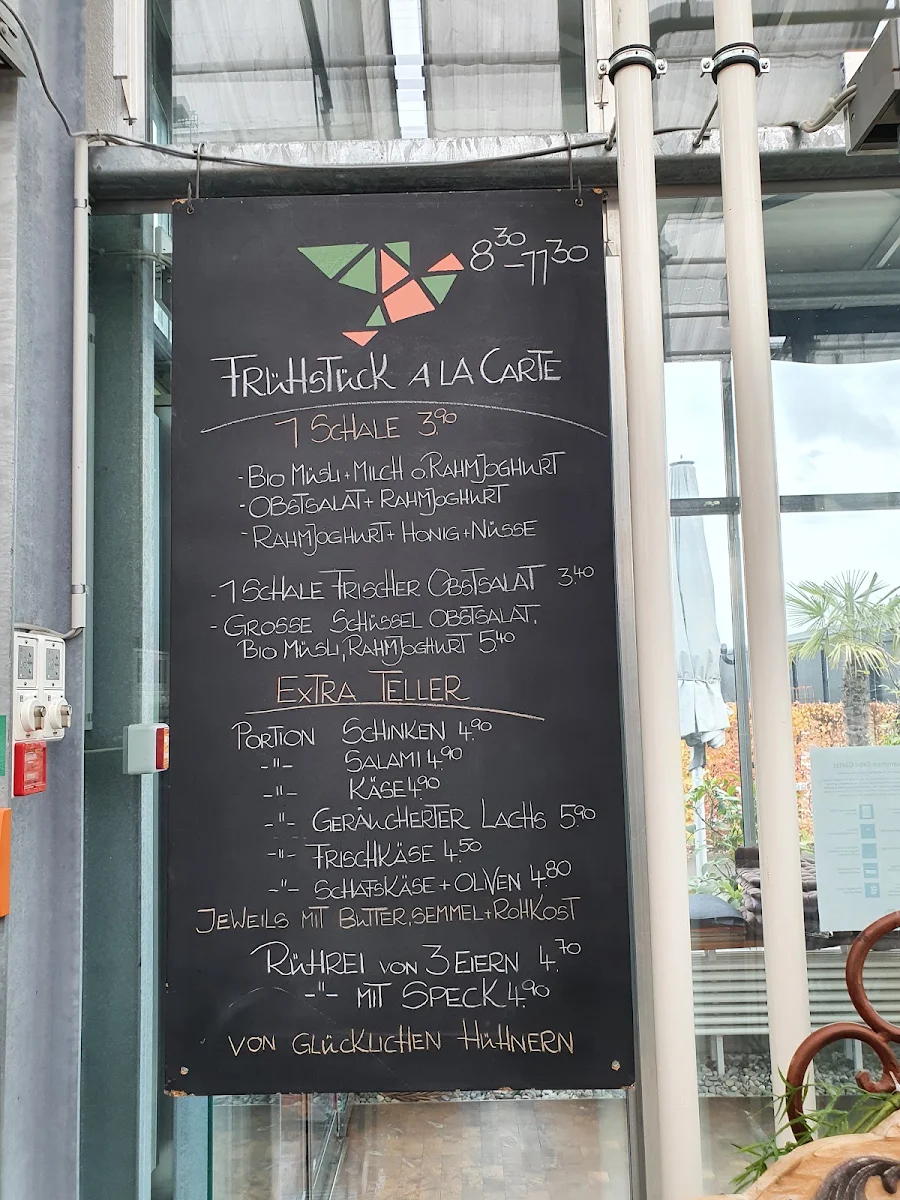 8³⁰-11³⁰
FRÜHSTÜCK A LA CARTE
1 SCHALE 3.90
- BIO MÜSLI + MILCH O. RAHMJOGHURT
- OBSTSALAT + RAHMJOGHURT
- RAHMJOGHURT + HONIG + NÜSSE
- 1 SCHALE FRISCHER OBSTSALAT 3.40
- GROSSE SCHÜSSEL OBSTSALAT,
BIO MÜSLI, RAHMJOGHURT 5.40
EXTRA TELLER
PORTION SCHINKEN 4.90
-"- SALAMI 4.90
-"- KÄSE 4.90
-"- GERÄUCHERTER LACHS 5.90
-"- FRISCHKÄSE 4.50
-"- SCHAFSKÄSE + OLIVEN 4.80
JEWEILS MIT BUTTER, SEMMEL + ROHKOST
RÜHREI VON 3 EIERN 4.70
-"- MIT SPECK 4.90
VON GLÜCKLICHEN HÜHNERN